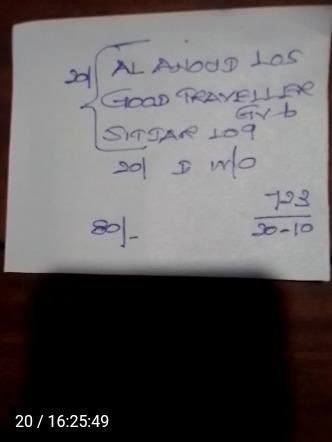 20/ AL ANOUD LOS
GOOD TRAVELLER
GVb
SITTAR LO9
20/ D W/O
723
80/-
20-10
20 / 16:25:49